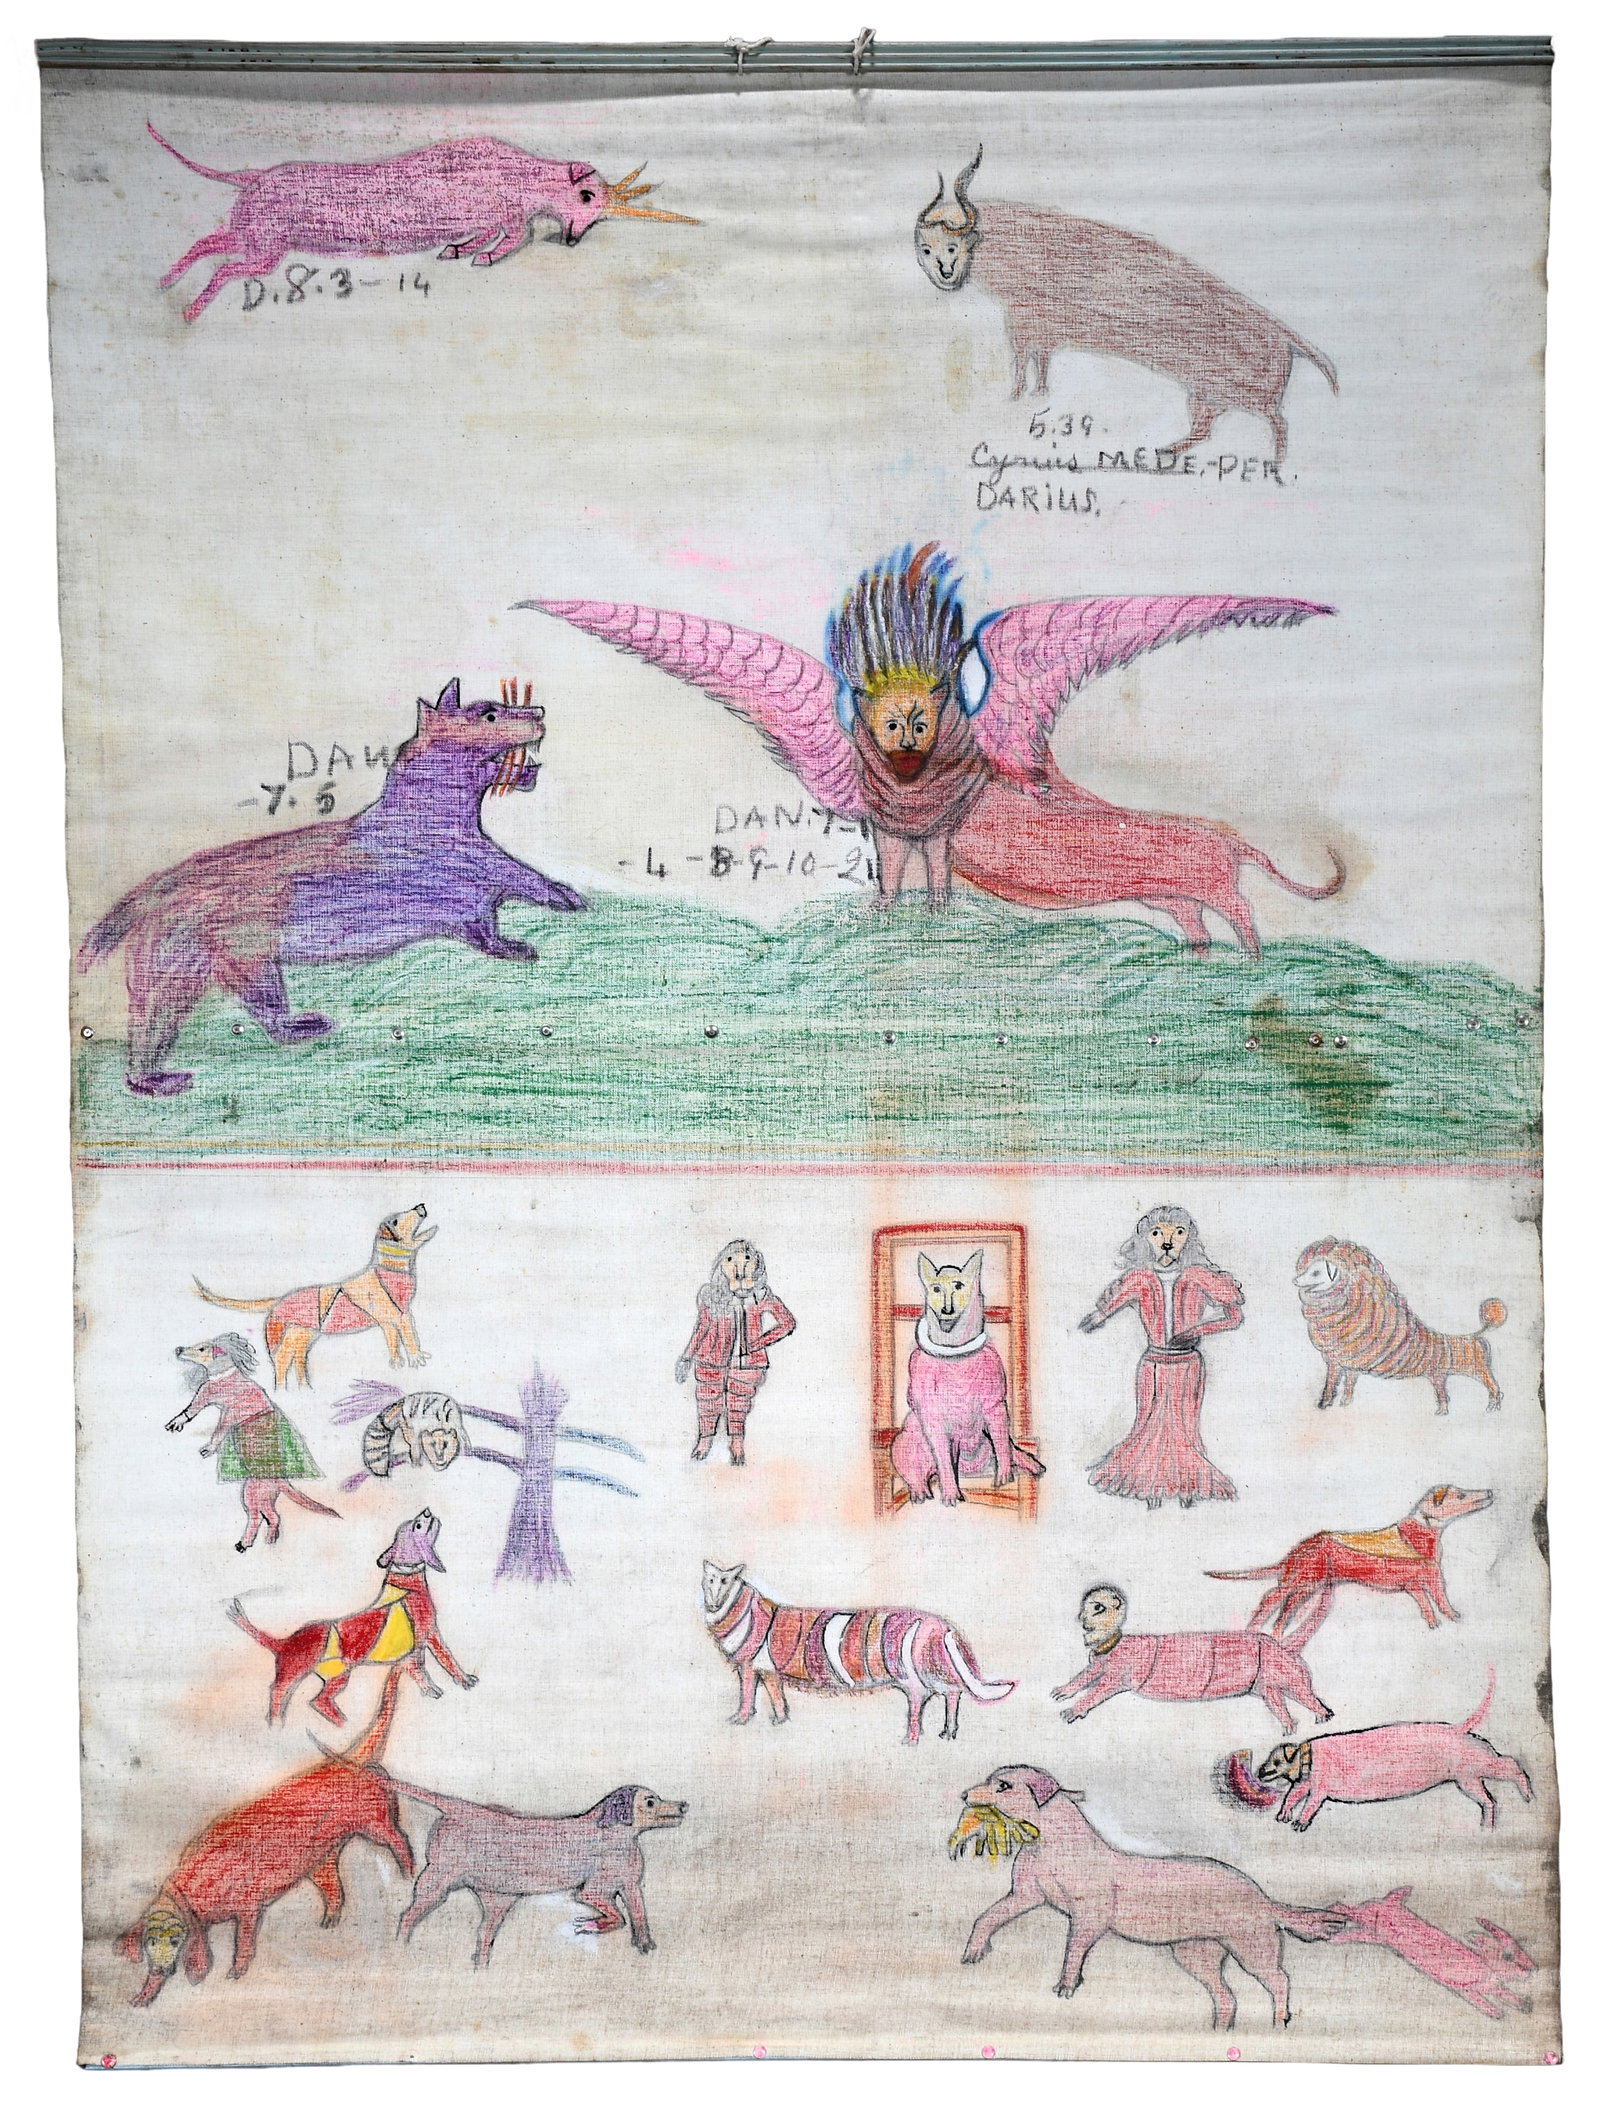 D.8.3-14
5.39.
Cyrius MEDE.-PER.
DARIUS.
DAN
-7.5
DAN.7-
-4-8-9-10-21